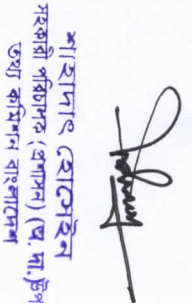 শাহাদাৎ হোসেইন
সহকারী পরিচালক (প্রশাসন) (অ. দা.)
তথ্য কমিশন বাংলাদেশ